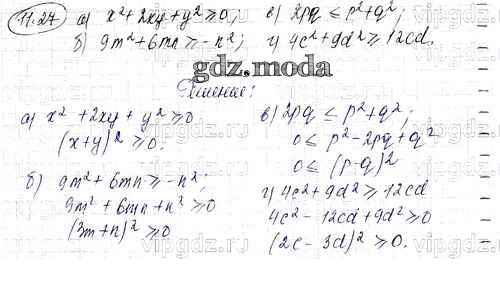 11.27 а) x² + 2xy + y² ≥ 0;
б) 9m² + 6mn ≥ -n²;
в) 2pq ≤ p² + q²;
г) 4c² + 9d² ≥ 12cd.
gdz.moda
Решение:
а) x² + 2xy + y² ≥ 0
(x+y)² ≥ 0.
б) 9m² + 6mn ≥ -n²;
9m² + 6mn + n² ≥ 0
(3m+n)² ≥ 0
в) 2pq ≤ p² + q²;
0 ≤ p² - 2pq + q²
0 ≤ (p-q)²
г) 4c² + 9d² ≥ 12cd
4c² - 12cd + 9d² ≥ 0
(2c - 3d)² ≥ 0.
vipgdz.ru
vipgdz.ru
vipgdz.ru